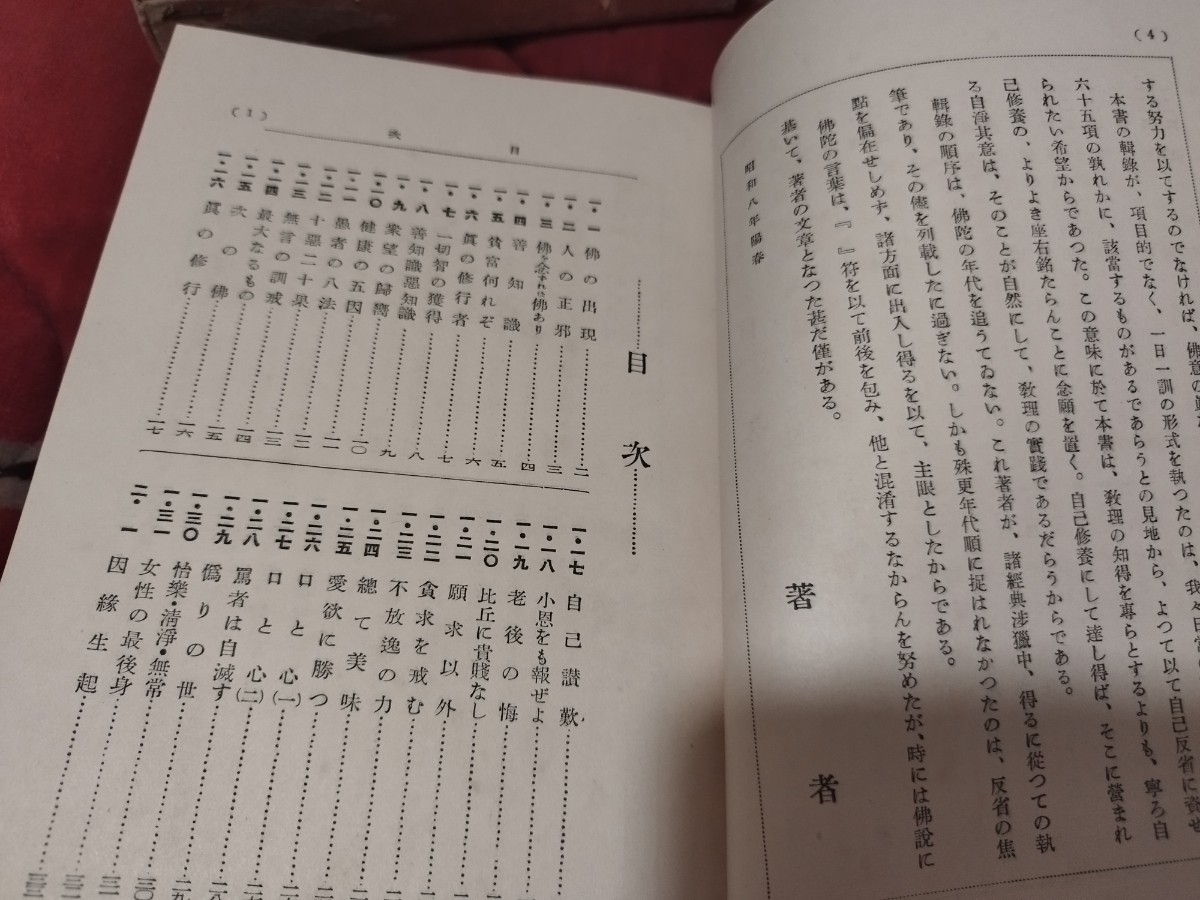 (4)
する努力を以てするのでなければ、佛意の
本書の輯錄が、項目的でなく、一日一訓の形式を執つたのは、我々
六十五項の孰れかに、該當するものがあるであらうとの見地から、よつて以て自己反省に資せ
られたい希望からであつた。この意味に於て本書は、敎理の知得を專らとするよりも、寧ろ自
己修養の、よりよき座右銘たらんことに念願を置く。自己修養にして達し得ば、そこに營まれ
る自淨其意は、そのことが自然にして、敎理の實踐であるだらうからである。
輯錄の順序は、佛陀の年代を追うてゐない。これ著者が、諸經典涉獵中、得るに從つての執
筆であり、その儘を列載したに過ぎない。しかも殊更年代順に捉はれなかつたのは、反省の焦
點を偏在せしめず、諸方面に出入し得るを以て、主眼としたからである。
佛陀の言葉は、『 』符を以て前後を包み、他と混淆するなからんを努めたが、時には佛說に
基いて、著者の文章となつた甚だ僅がある。
昭和八年陽春
著者
目次
(1)
目次
一・一 佛の出現 二
一・二 人の正邪 三
一・三 佛を念ずれば佛あり 四
一・四 善知識 五
一・五 貧富何れぞ 六
一・六 眞の修行者 七
一・七 一切智の獲得 八
一・八 善知識惡知識 九
一・九 衆望の歸嚮 九
一・一〇 健康の五因 一〇
一・一一 愚者の八法 一一
一・一二 十惡二十果 一二
一・一三 無言の訓戒 一三
一・一四 最大なるもの 一四
一・一五 次の佛 一五
一・一六 眞の修行 一六
一七
一・一七 自己讃歎
一・一八 小恩をも報ぜよ
一・一九 老後の悔
一・二〇 比丘に貴賤なし
一・二一 願求以外
一・二二 貪求を戒む
一・二三 不放逸の力
一・二四 總て美味
一・二五 愛欲に勝つ
一・二六 口と心(一)
一・二七 口と心(二)
一・二八 罵者は自滅す
一・二九 僞りの世
一・三〇 怡樂・淸淨・無常
一・三一 女性の最後身
二・一 因緣生起